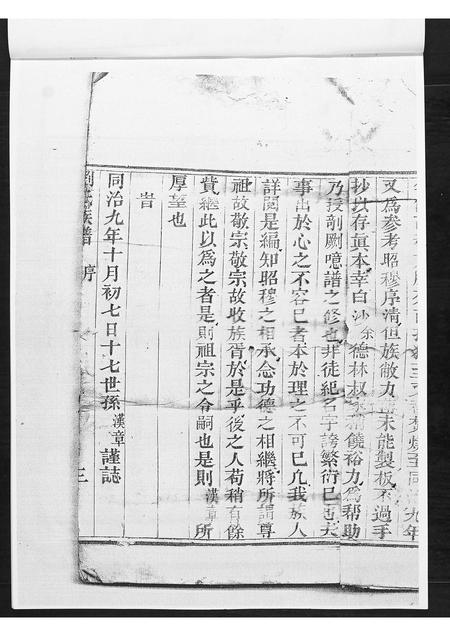 至同九年
又為參考昭穆序清但族敝力未能製板不過手
抄以存真本幸白沙余德林叔家稍饒裕力為幫助
乃授剞劂噫譜之修也非徒紀名字誇繁衍已也夫
事出於心之不容已者本於理之不可已凡我族人
詳閱是編知昭穆之相承念功德之相繼將所謂尊
祖故敬宗敬宗故收族胥於是乎後之人苟稍有餘
貲繼此以為之者是則祖宗之令嗣也是則漢章所
厚望也
旹
同治九年十月初七日十七世孫漢章謹誌
族譜 序 三